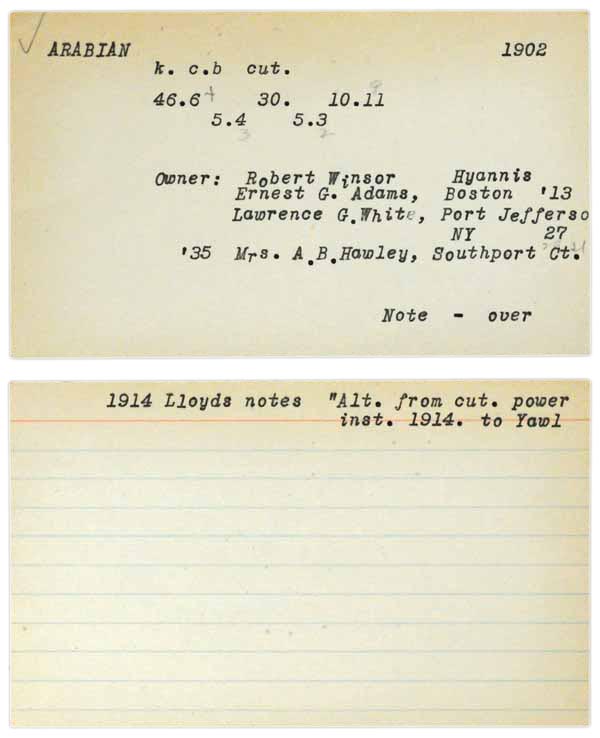 ARABIAN 1902
k. c.b cut.
46.6 30. 10.11
5.4 5.3
3 2
Owner: Robert Winsor Hyannis
Ernest G. Adams, Boston '13
Lawrence G.White, Port Jefferso
NY 27
'35 Mrs. A.B.Hawley, Southport Ct.
Note - over
1914 Lloyds notes "Alt. from cut. power
inst. 1914. to Yawl